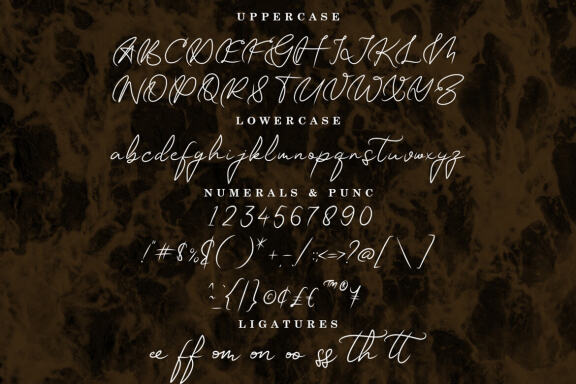 UPPERCASE
ABCDEFGHIJKLM
NOPQRSTUVWXYZ
LOWERCASE
abcdefghijklmnopqrstuvwxyz
NUMERALS & PUNC
1234567890
!"#$%&()*+-/:;<=>?@[\]
^_{|}©¢£€™®¥
LIGATURES
ee ff om on oo ss th tt